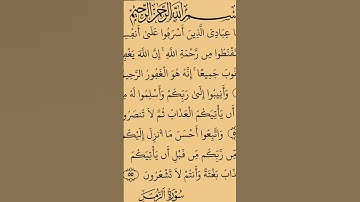 ـسم الله الرحمن الرحيم
ا عِبَادِيَ الَّذِينَ أَسْرَفُوا عَلَىٰ أَنفُسِ
قْنَطُوا مِن رَّحْمَةِ اللَّهِ ۚ إِنَّ اللَّهَ يَغْفِ
نُوبَ جَمِيعًا ۚ إِنَّهُ هُوَ الْغَفُورُ الرَّحِيمُ
وَأَنِيبُوا إِلَىٰ رَبِّكُمْ وَأَسْلِمُوا لَهُ مِ
أَن يَأْتِيَكُمُ الْعَذَابُ ثُمَّ لَا تُنصَرُو
وَاتَّبِعُوا أَحْسَنَ مَا أُنزِلَ إِلَيْكُم
مِّن رَّبِّكُم مِّن قَبْلِ أَن يَأْتِيَكُمُ
ذَابُ بَغْتَةً وَأَنتُمْ لَا تَشْعُرُونَ ٥٥
سُورَةُ الزُّمَر